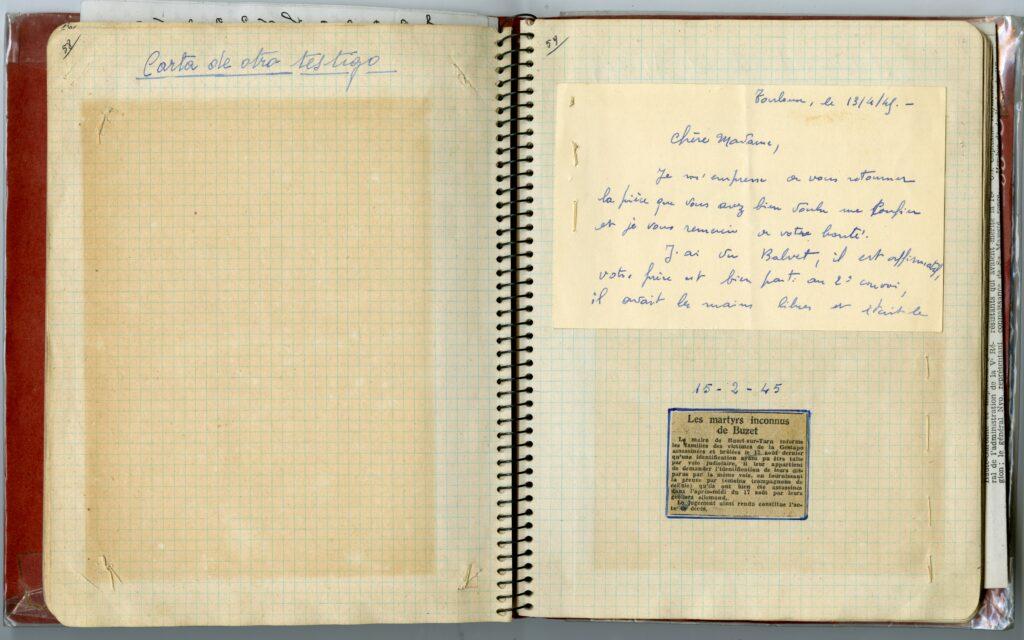 58
Carta de otro testigo
59
Toulouse, le 13/4/45.-
Chère Madame,
Je m'empresse de vous retourner
la pièce que vous avez bien voulu me confier
et je vous remercie de votre bonté.
J'ai vu Balvet, il est affirmatif,
votre frère est bien parti au 2e convoi,
il avait les mains libres et était le
15-2-45
Les martyrs inconnus
de Buzet
Le maire de Buzet-sur-Tarn informe
les familles des victimes de la Gestapo
assassinées et brûlées le 17 août dernier
qu'une identification ayant pu être faite
par voie judiciaire, il leur appartient
de demander l'identification de leurs dis-
parus par la même voie, en fournissant
la preuve par témoins (compagnons de
cellule) qu'ils ont bien été assassinés
dans l'après-midi du 17 août par leurs
geôliers allemand.
Le jugement ainsi rendu constitue l'ac-
te de décès.
résistants qui avaient
ral de l'administration de la Ve Ré-
gion ; le général Nyo, représentant